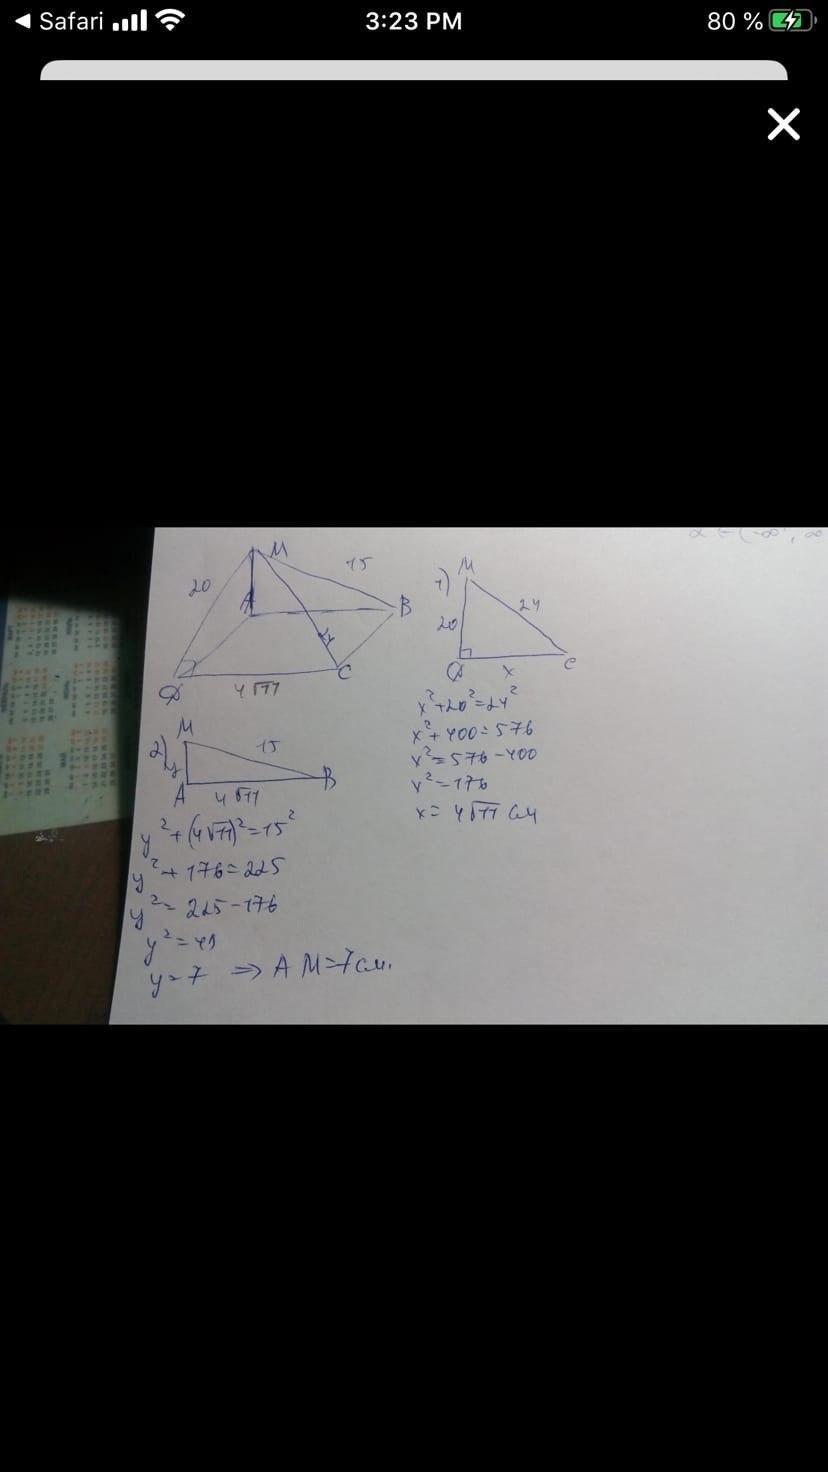 Safari 3:23 PM 80 %
M
20
15
A
B
24
D
C
4√11
1)
M
24
20
D
x
C
x²+20²=24²
x²+400=576
x²=576-400
x²=176
x=4√11 см
2)
M
15
y
A
4√11
B
y²+(4√11)²=15²
y²+176=225
y²=225-176
y²=49
y=7 ⇒ AM=7см.